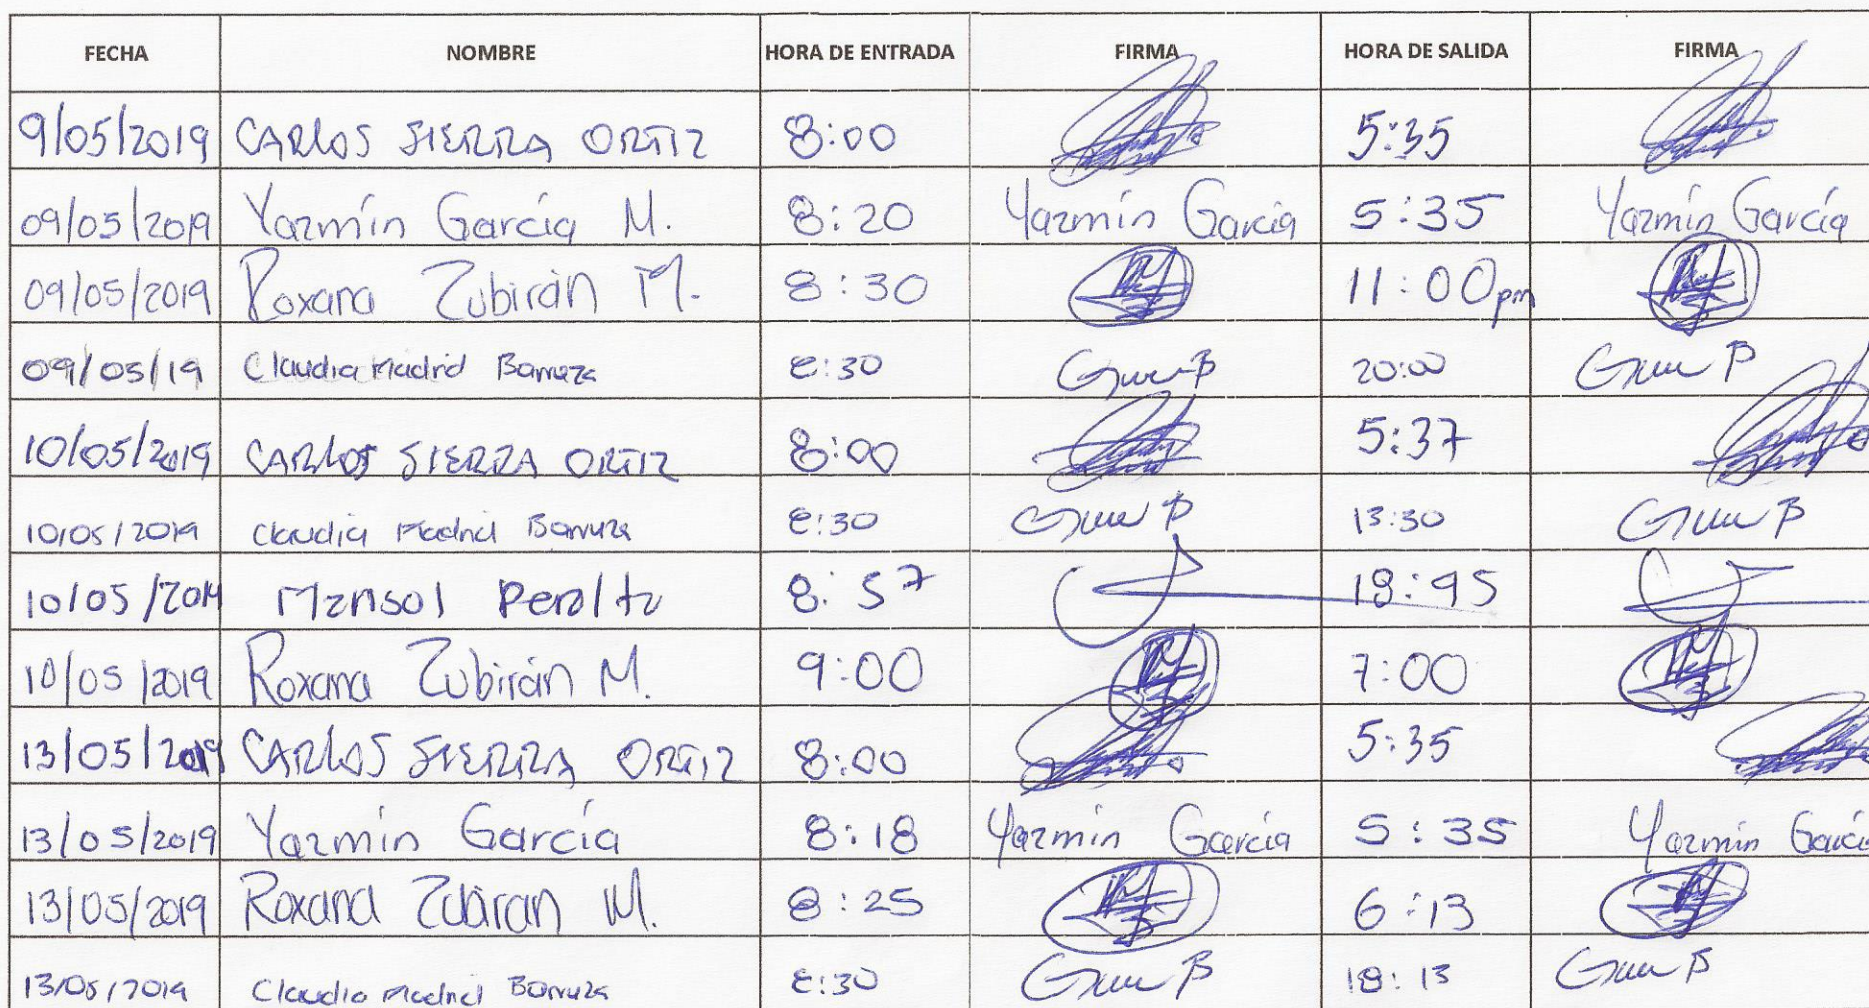 FECHA NOMBRE HORA DE ENTRADA FIRMA HORA DE SALIDA FIRMA
9/05/2019 CARLOS SIERRA ORTIZ 8:00 5:35
09/05/2019 Yazmín García M. 8:20 Yazmín García 5:35 Yazmín García
09/05/2019 Roxana Zubirán M. 8:30 11:00 pm
09/05/19 Claudia Madrid Barraza 8:30 20:00
10/05/2019 CARLOS SIERRA ORTIZ 8:00 5:37
10/05/2019 Claudia Madrid Barraza 8:30 13:30
10/05/2019 Marisol Peralta 8:57 18:45
10/05/2019 Roxana Zubirán M. 9:00 7:00
13/05/2019 CARLOS SIERRA ORTIZ 8:00 5:35
13/05/2019 Yazmín García 8:18 Yazmín García 5:35 Yazmín García
13/05/2019 Roxana Zubiran M. 8:25 6:13
13/05/2019 Claudia Madrid Barraza 8:30 18:13